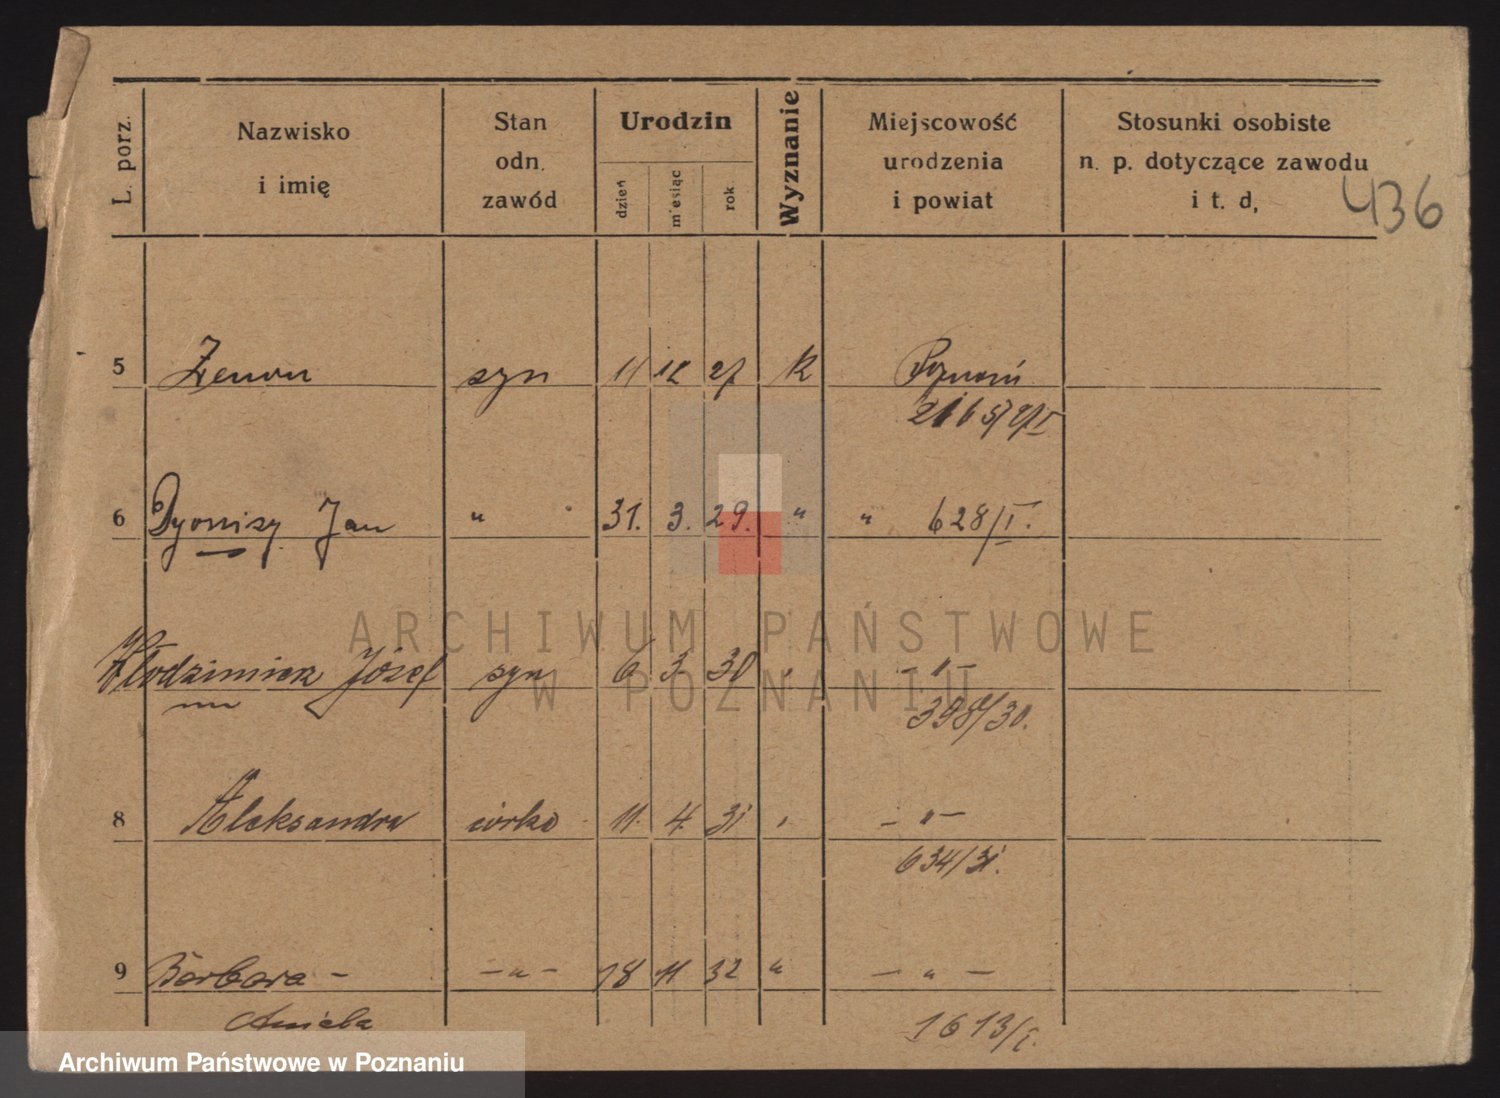 L. porz.
Nazwisko
i imię
Stan
odn.
zawód
Urodzin
dzień
m'esiąc
rok.
Wyznanie
Miejscowość
urodzenia
i powiat
Stosunki osobiste
n. p. dotyczące zawodu
i t. d,
436
5 Zenon syn 11 12 27 K Poznań
6 Dyonizy Jan " 31. 3. 29. " " 628/I.
Włodzimierz Józef syn 6 3 30 " – " –
398/30.
8 Aleksandra córka 11. 4. 31 " – " –
634/31.
9 Barbara – – " – 18 11 32 " – " –
Aniela 1613/I.
ARCHIWUM PAŃSTWOWE
W POZNANIU
Archiwum Państwowe w Poznaniu